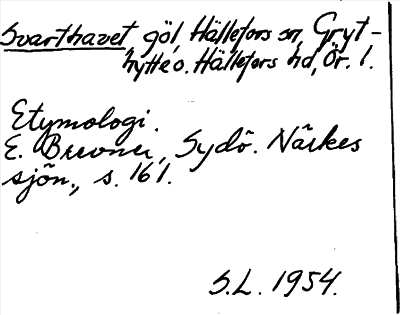 Svarthavet göl, Hällefors sn, Gryt-
hytte o. Hällefors hd, Ör. l.
Etymologi.
E. Brevner, Sydö. Närkes
sjön., s. 161.
S.L. 1954.